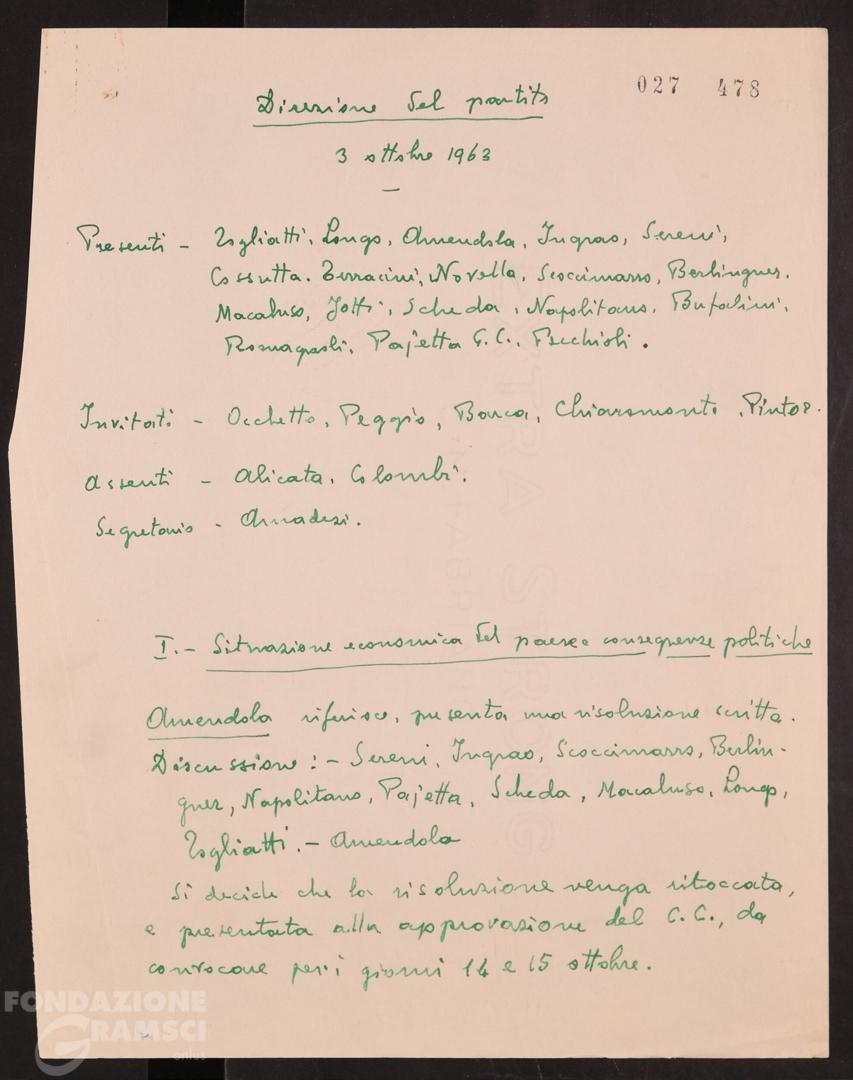 027 478
Direzione del partito
3 ottobre 1963
Presenti - Togliatti, Longo, Amendola, Ingrao, Sereni,
Cossutta. Terracini, Novella, Scoccimarro, Berlinguer.
Macaluso, Jotti, Scheda, Napolitano, Bufalini,
Romagnoli, Pajetta G.C., Pecchioli.
Invitati - Occhetto, Peggio, Barca, Chiaromonte, Pintor.
Assenti - Alicata, Colombi.
Segretario - Amadesi.
I.- Situazione economica del paese e conseguenze politiche
Amendola riferisce, presenta una risoluzione scritta.
Discussione: - Sereni, Ingrao, Scoccimarro, Berlin-
guer, Napolitano, Pajetta, Scheda, Macaluso, Longo,
Togliatti. - Amendola
Si decide che la risoluzione venga ritoccata,
e presentata alla approvazione del C.C., da
convocare per i giorni 14 e 15 ottobre.
FONDAZIONE
GRAMSCI
onlus